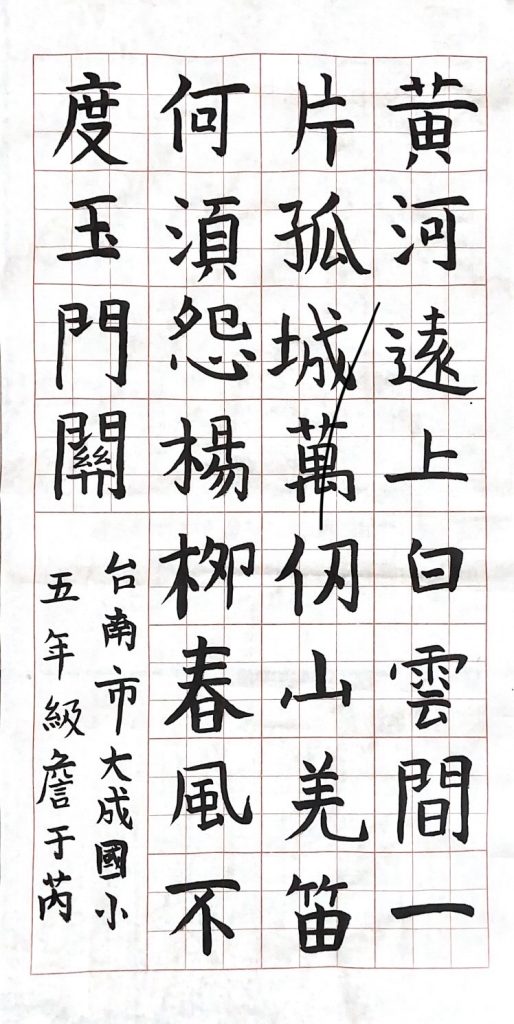 黃河遠上白雲間一
片孤城萬仞山羌笛
何須怨楊柳春風不
度玉門關
台南市大成國小
五年級詹于芮